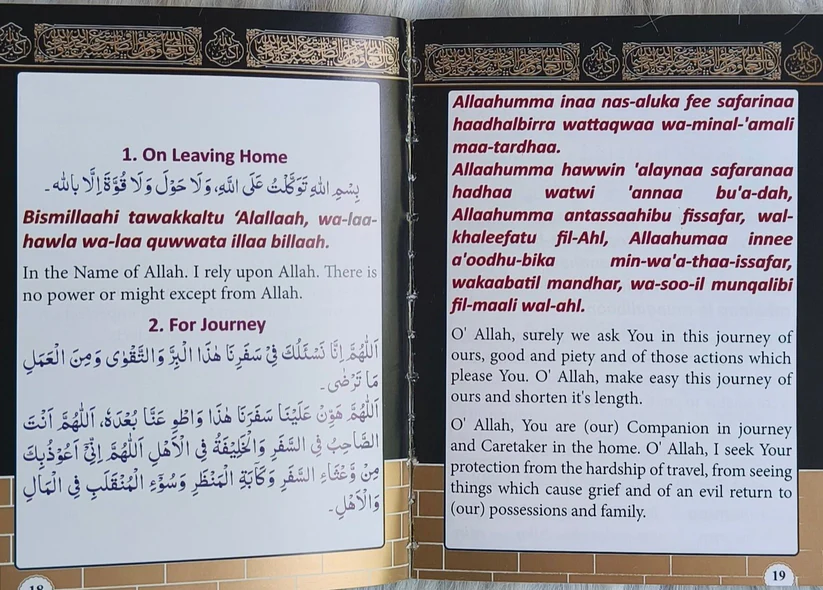 1. On Leaving Home
بِسْمِ اللهِ تَوَكَّلْتُ عَلَى اللهِ، وَلَا حَوْلَ وَلَا قُوَّةَ اِلَّا بِالله۔
Bismillaahi tawakkaltu ‘Alallaah, wa-laa-
hawla wa-laa quwwata illaa billaah.
In the Name of Allah. I rely upon Allah. There is
no power or might except from Allah.
2. For Journey
اَللّٰهُمَّ اِنَّا نَسْئَلُكَ فِيْ سَفَرِنَا هٰذَا الْبِرَّ وَالتَّقْوٰى وَمِنَ الْعَمَلِ
مَا تَرْضٰى۔
اَللّٰهُمَّ هَوِّنْ عَلَيْنَا سَفَرَنَا هٰذَا وَاطْوِ عَنَّا بُعْدَهٗ، اَللّٰهُمَّ اَنْتَ
الصَّاحِبُ فِي السَّفَرِ وَالْخَلِيْفَةُ فِي الْاَهْلِ اَللّٰهُمَّ اِنِّيْ اَعُوْذُبِكَ
مِنْ وَّعْثَاءِ السَّفَرِ وَكَآبَةِ الْمَنْظَرِ وَسُوْٓءِ الْمُنْقَلَبِ فِي الْمَالِ
وَالْاَهْلِ۔
18
Allaahumma inaa nas-aluka fee safarinaa
haadhalbirra wattaqwaa wa-minal-'amali
maa-tardhaa.
Allaahumma hawwin 'alaynaa safaranaa
hadhaa watwi 'annaa bu'a-dah,
Allaahumma antassaahibu fissafar, wal-
khaleefatu fil-Ahl, Allaahumaa innee
a'oodhu-bika min-wa'a-thaa-issafar,
wakaabatil mandhar, wa-soo-il munqalibi
fil-maali wal-ahl.
O' Allah, surely we ask You in this journey of
ours, good and piety and of those actions which
please You. O' Allah, make easy this journey of
ours and shorten it's length.
O' Allah, You are (our) Companion in journey
and Caretaker in the home. O' Allah, I seek Your
protection from the hardship of travel, from seeing
things which cause grief and of an evil return to
(our) possessions and family.
19